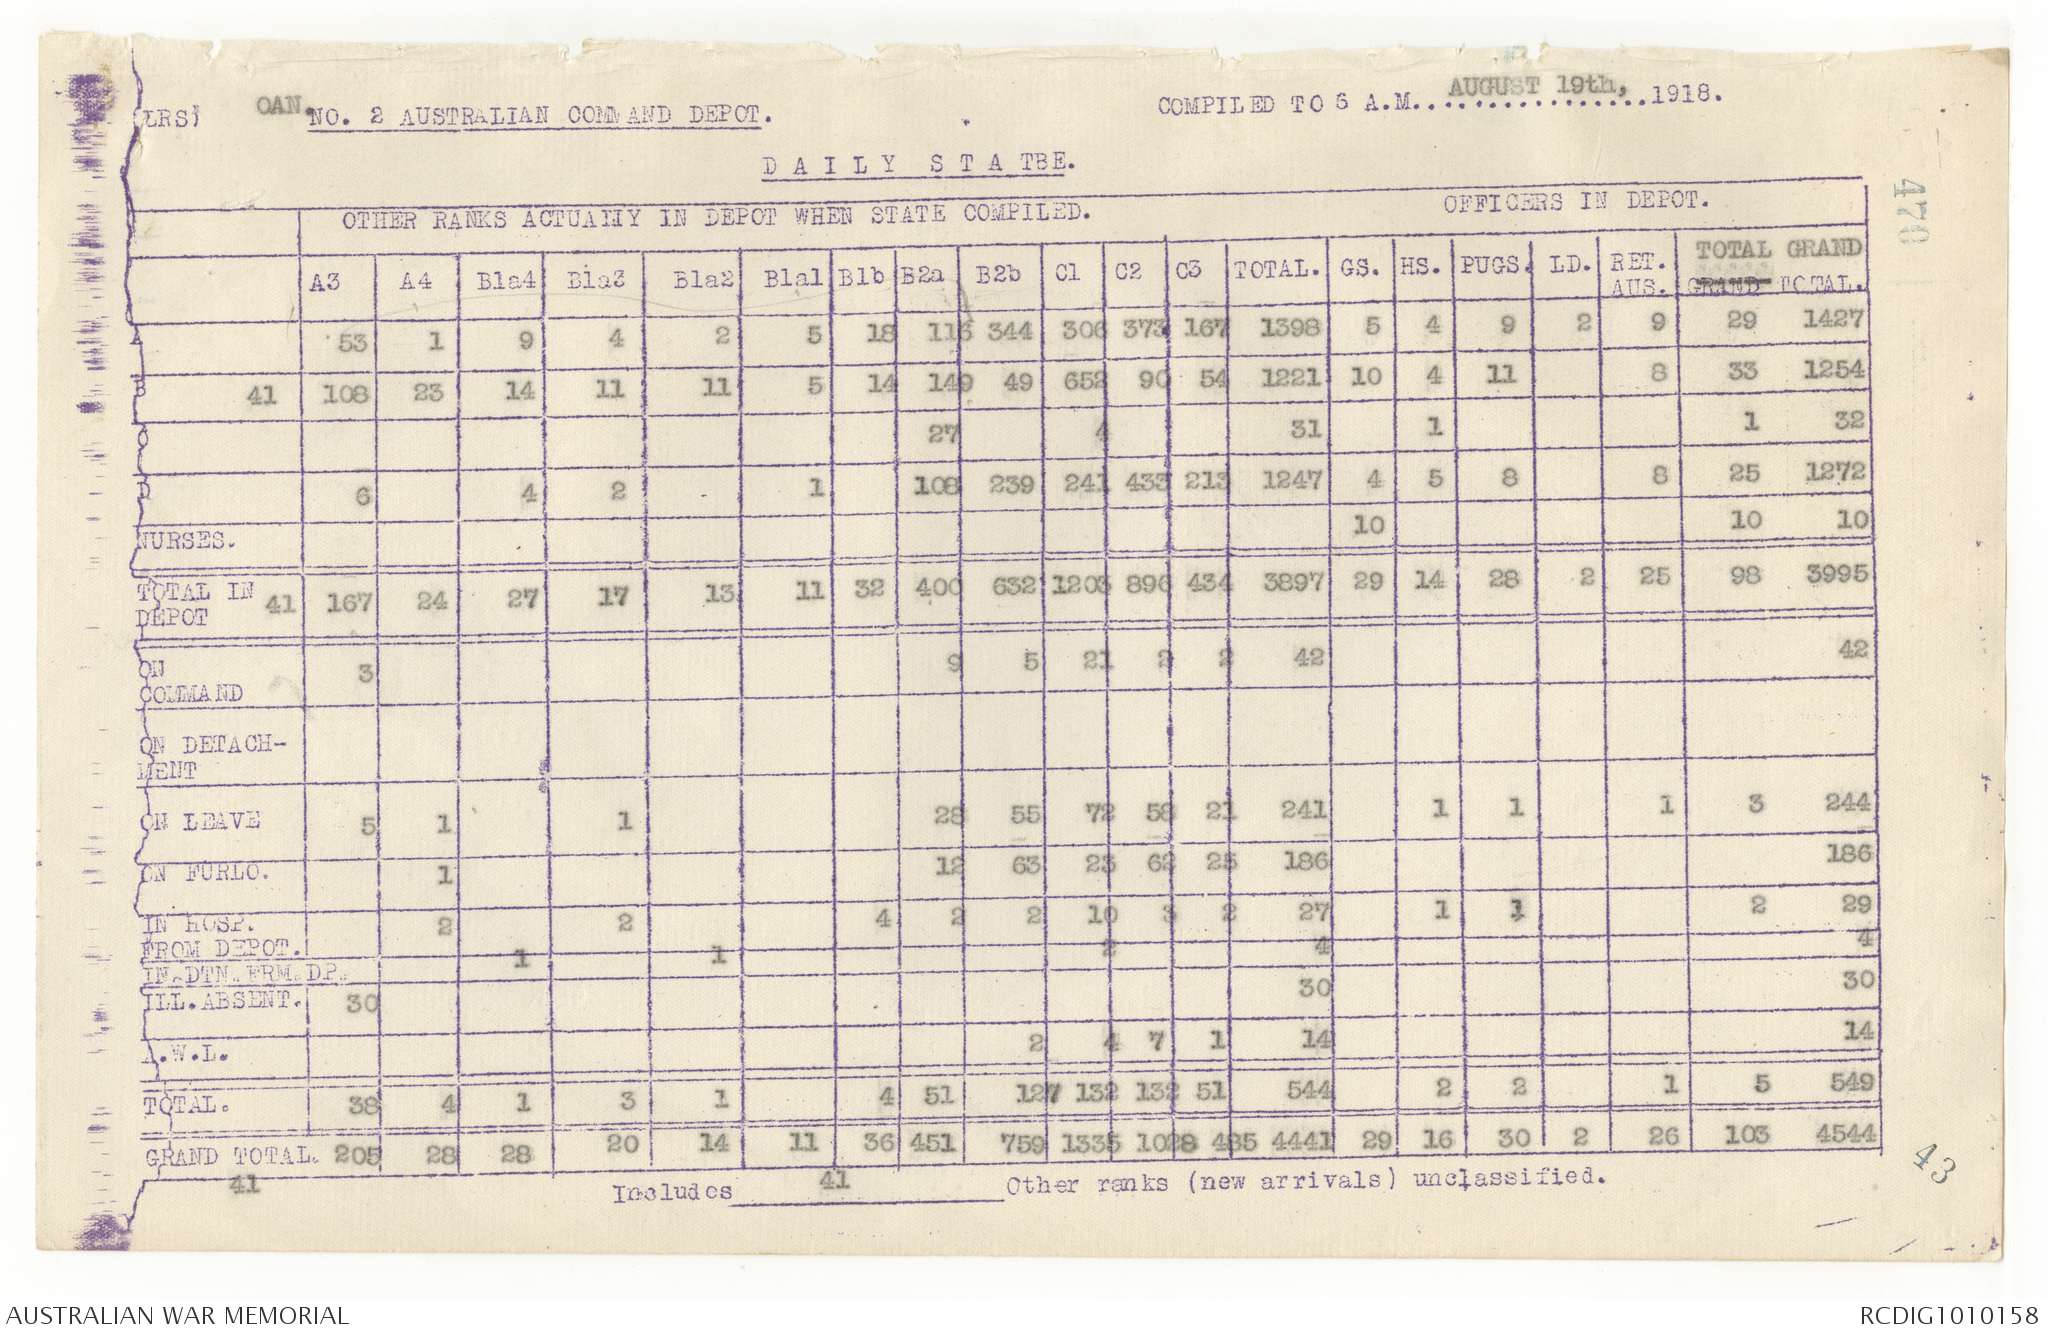 (LRS) OAN. NO. 2 AUSTRALIAN COMMAND DEPOT. COMPILED TO 6 A.M. AUGUST 19th, 1918.
D A I L Y S T A TBE.
OTHER RANKS ACTUALLY IN DEPOT WHEN STATE COMPILED. OFFICERS IN DEPOT.
A3 A4 B1a4 B1a3 B1a2 B1a1 B1b B2a B2b C1 C2 C3 TOTAL. GS. HS. PUGS. LD. RET. AUS. TOTAL GRAND
GRAND TOTAL.
A 53 1 9 4 2 5 18 116 344 306 373 167 1398 5 4 9 2 9 29 1427
B 41 108 23 14 11 11 5 14 149 49 652 90 54 1221 10 4 11 8 33 1254
C 27 4 31 1 1 32
D 6 4 2 1 108 239 241 433 213 1247 4 5 8 8 25 1272
NURSES. 10 10 10
TOTAL IN DEPOT 41 167 24 27 17 13 11 32 400 632 1203 896 434 3897 29 14 28 2 25 98 3995
ON COMMAND 3 9 5 21 2 2 42 42
ON DETACH-
MENT
ON LEAVE 5 1 1 28 55 72 58 21 241 1 1 1 3 244
ON FURLO. 1 12 63 23 62 25 186 186
IN HOSP. FROM DEPOT. 2 2 4 2 2 10 3 2 27 1 1 2 29
IN.DTN.FRM.DP. 1 1 2 4 4
ILL.ABSENT. 30 30 30
A.W.L. 2 4 7 1 14 14
TOTAL. 38 4 1 3 1 4 51 127 132 132 51 544 2 2 1 5 549
GRAND TOTAL. 205 28 28 20 14 11 36 451 759 1335 1028 485 4441 29 16 30 2 26 103 4544
41 Includes 41 Other ranks (new arrivals) unclassified.
476
43
AUSTRALIAN WAR MEMORIAL RCDIG1010158